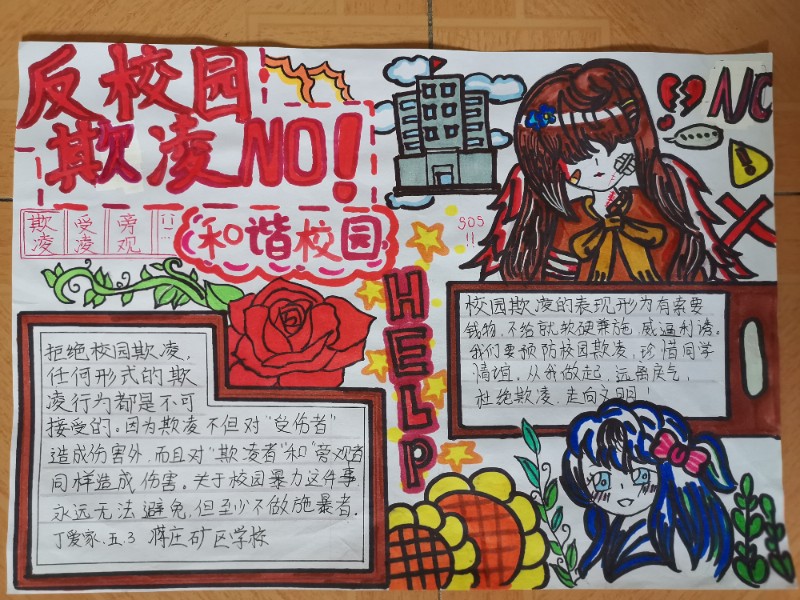 反校园
欺凌NO!
欺凌
受凌
旁观
和谐校园
SOS
!!
NO
HELP
拒绝校园欺凌,
任何形式的欺
凌行为都是不可
接受的。因为欺凌不但对“受伤者”
造成伤害外,而且对“欺凌者”和“旁观者
同样造成伤害。关于校园暴力这件事
永远无法避免,但至少不做施暴者.
丁爱家.五.3 蒋庄矿区学校
校园欺凌的表现形为有索要
钱物,不给就软硬兼施,威逼利诱。
我们要预防校园欺凌,珍惜同学
情谊,从我做起,远离戾气,
杜绝欺凌,走向文明!